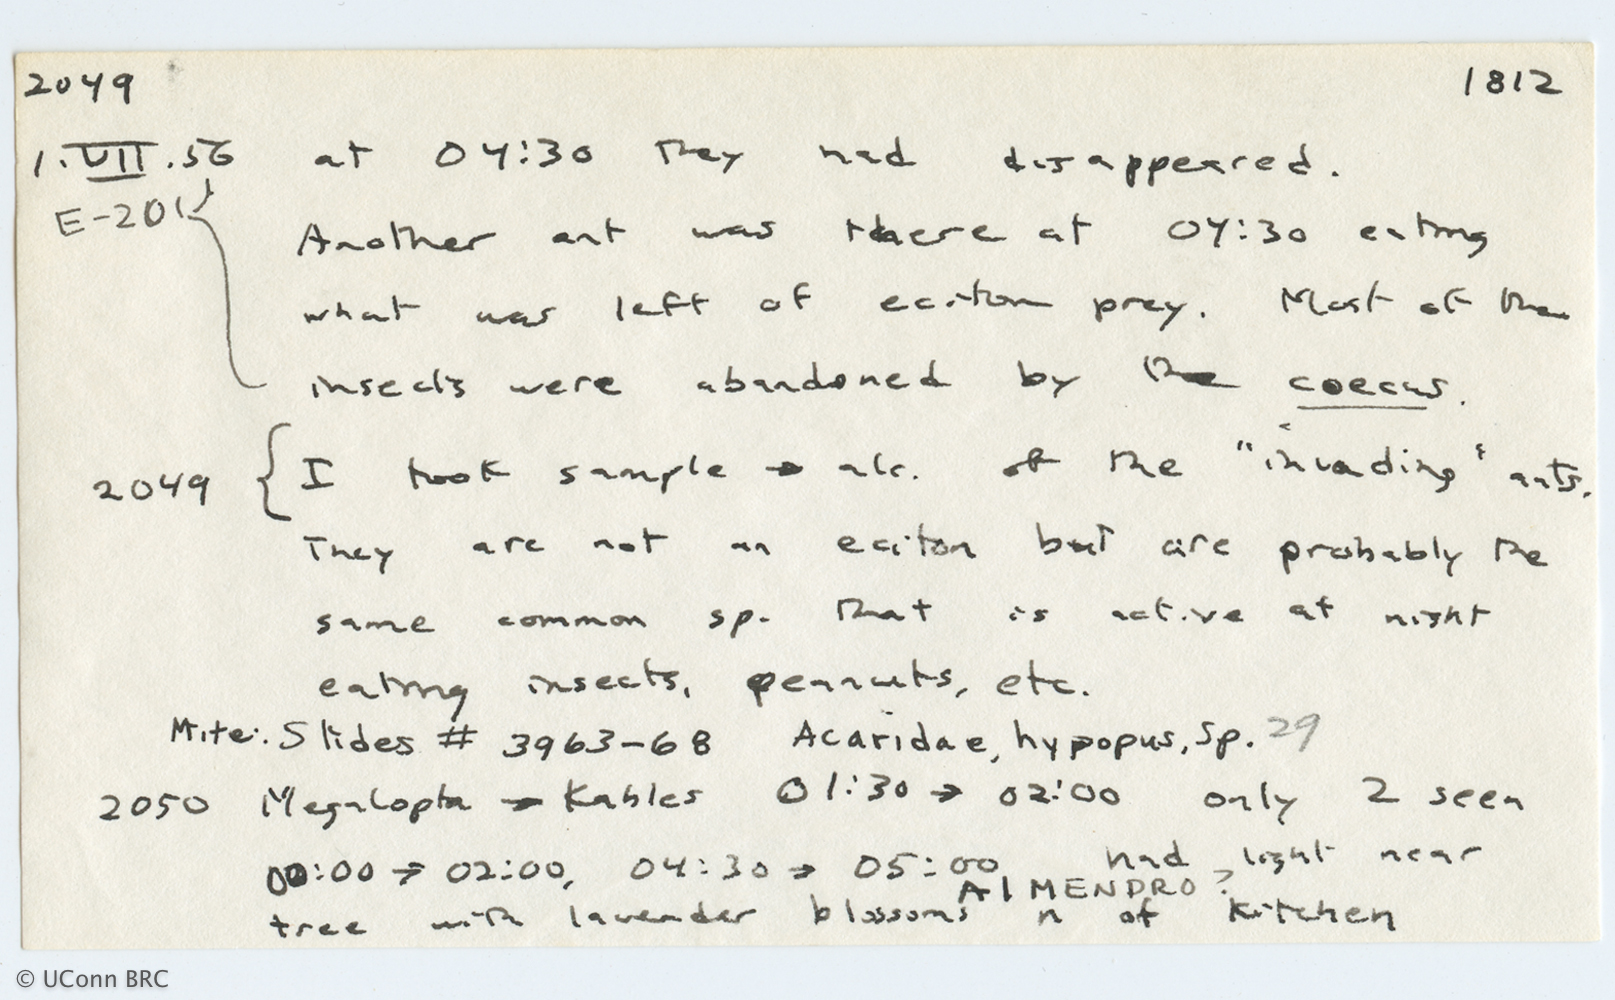 2049 1812
1.VII.56 at 04:30 they had disappeared.
E-201 Another ant was there at 04:30 eating
what was left of eciton prey. Most of the
insects were abandoned by the coecus.
2049 { I took sample → alc. of the "invading" ants.
They are not an eciton but are probably the
same common sp. that is active at night
eating insects, peanuts, etc.
Mite: Slides # 3963-68 Acaridae, hypopus, sp. 29
2050 Megalopta → Kahles 01:30 → 02:00 only 2 seen
00:00 → 02:00, 04:30 → 05:00 had light near
AlMENDRO?
tree with lavender blossoms n of kitchen
© UConn BRC